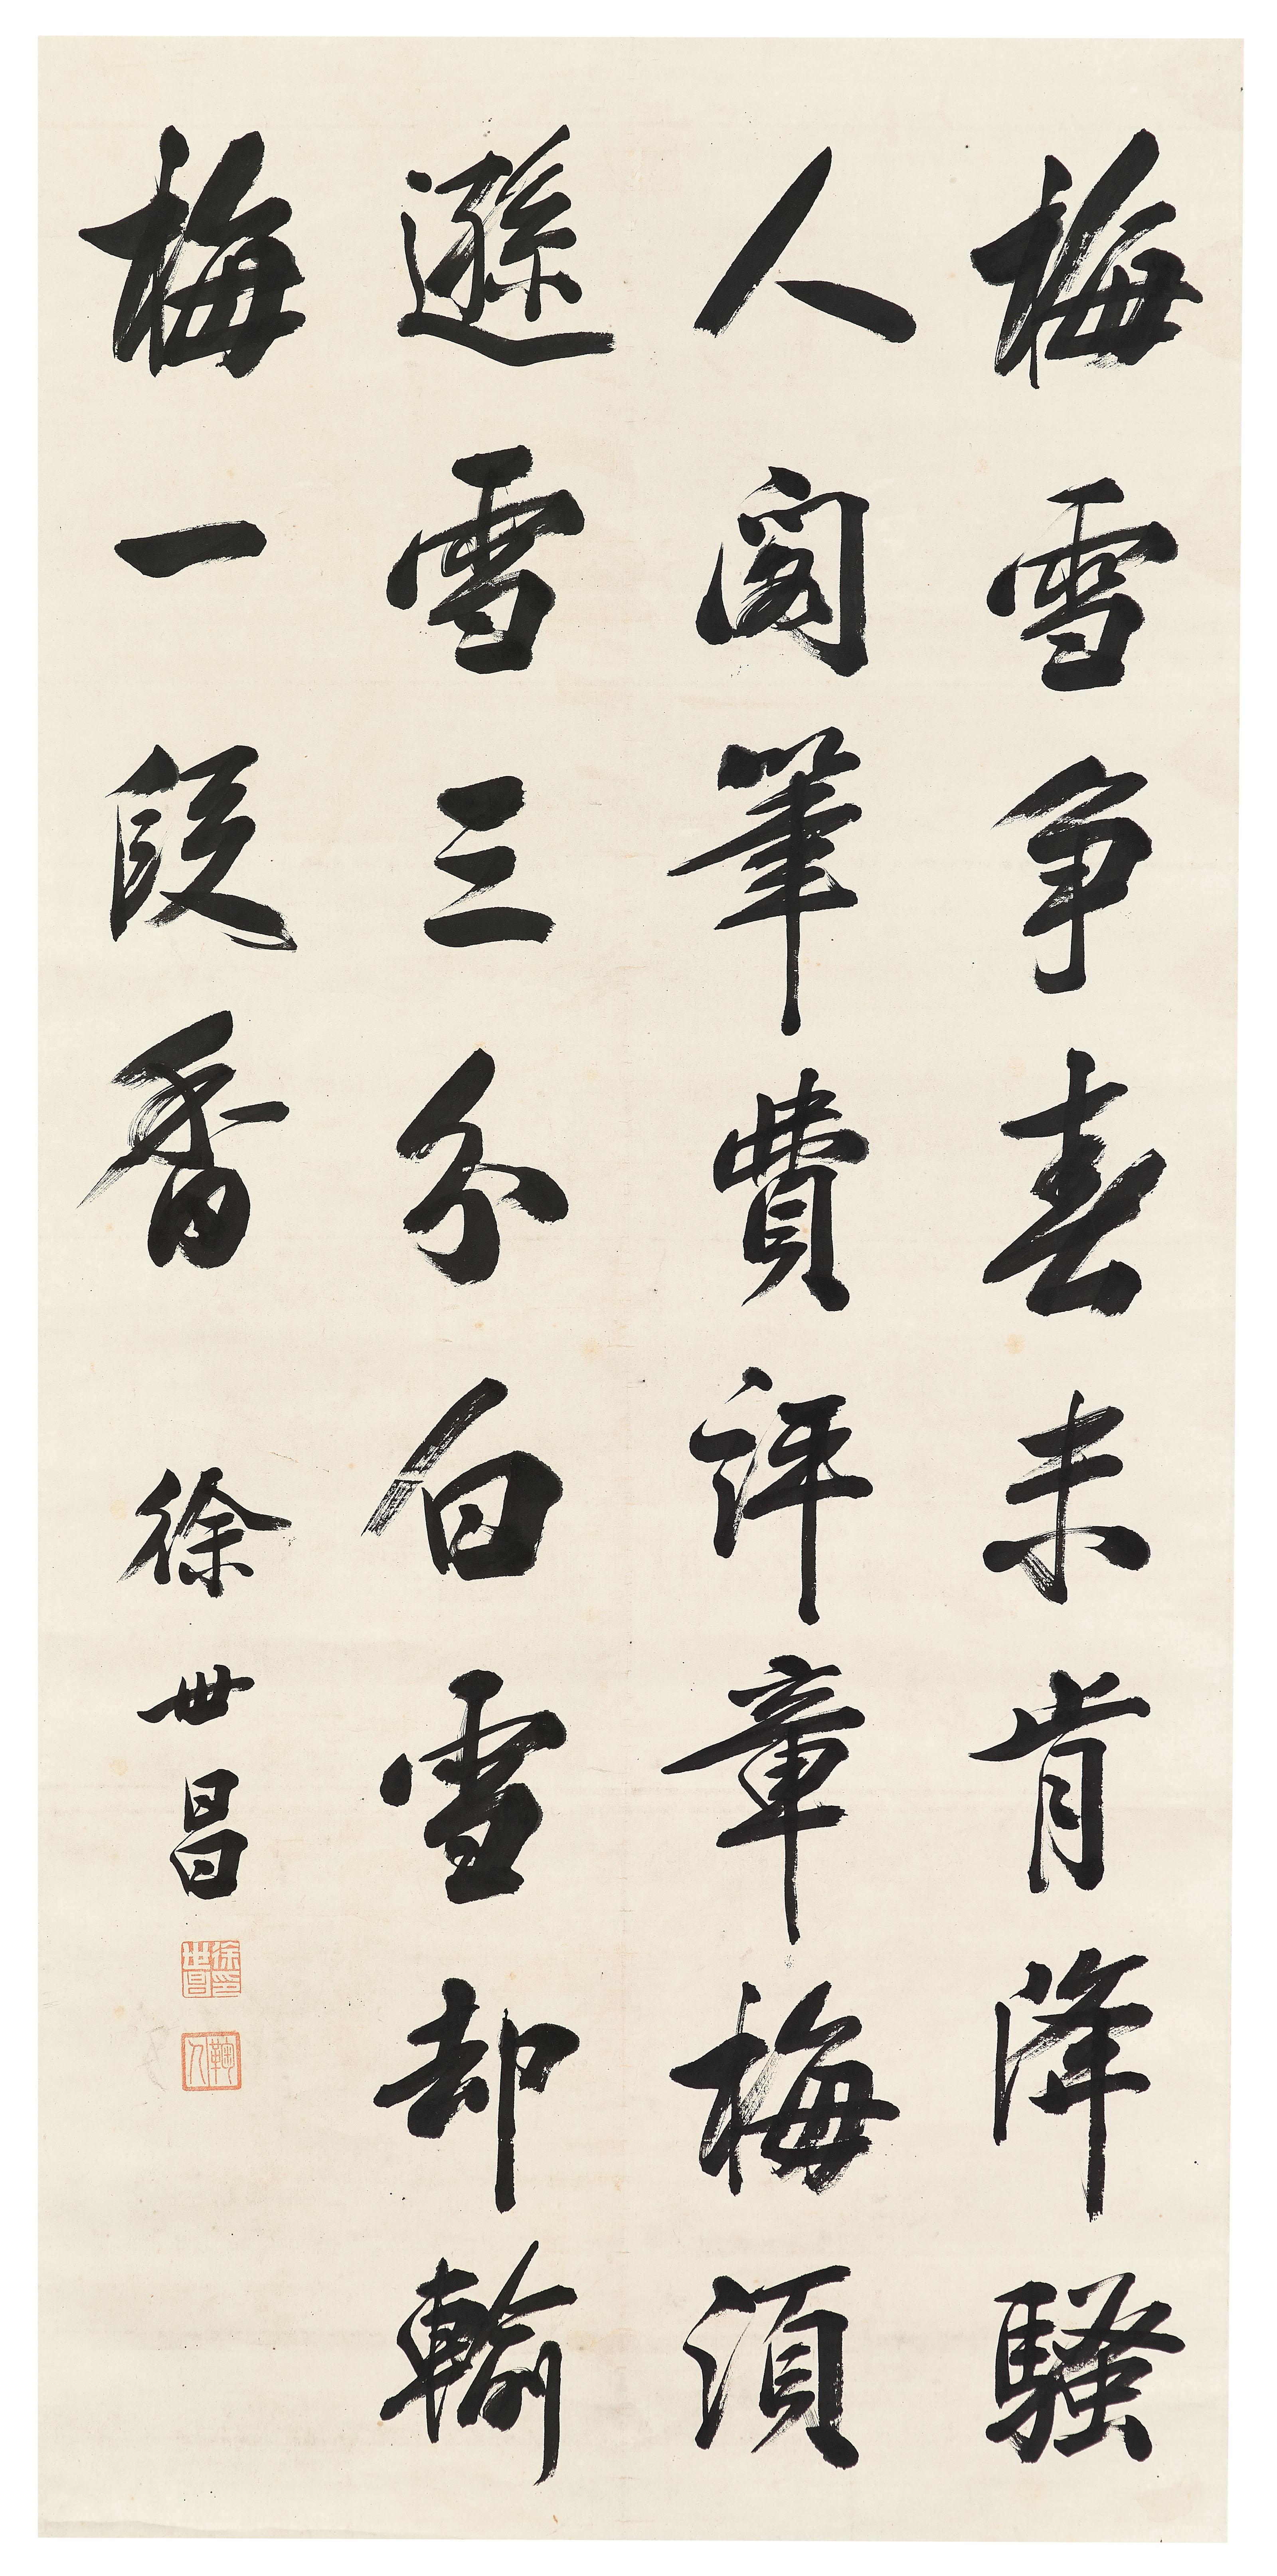 梅雪争春未肯降騷
人閣筆費評章梅須
遜雪三分白雪却輸
梅一段香
徐世昌
徐世昌印
鞠人